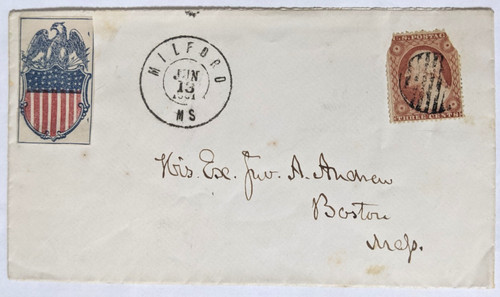 MILFORD
JUN
13
1861
MS
U.S. POSTAGE
THREE CENTS
His. Ex. Jno. A. Andrew
Boston
Mass.